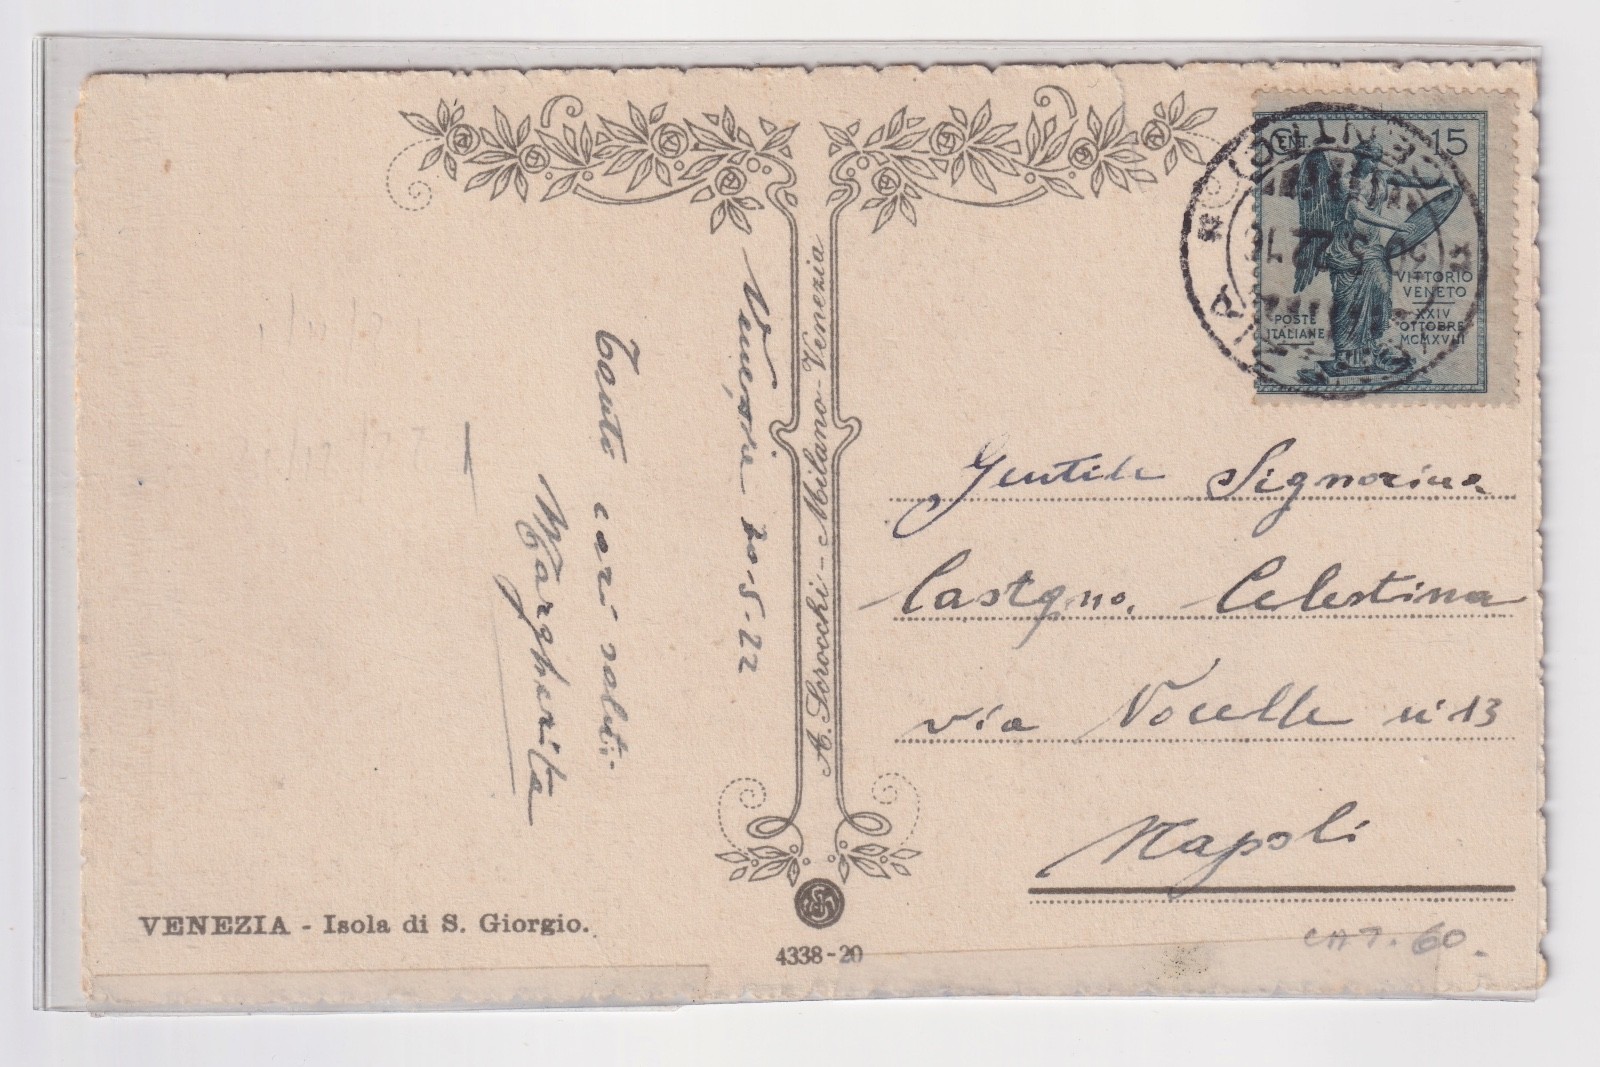 Venezia 30-5-22
Tanti cari saluti
Margherita
A. Scrocchi - Milano - Venezia
CENT. 15
VITTORIO
VENETO
XXIV
OTTOBRE
MCMXVIII
POSTE
ITALIANE
30 5 22
Gentile Signorina
Celestina
via Nocelle n° 13
Napoli
VENEZIA - Isola di S. Giorgio.
4338-20
CAT. 60.